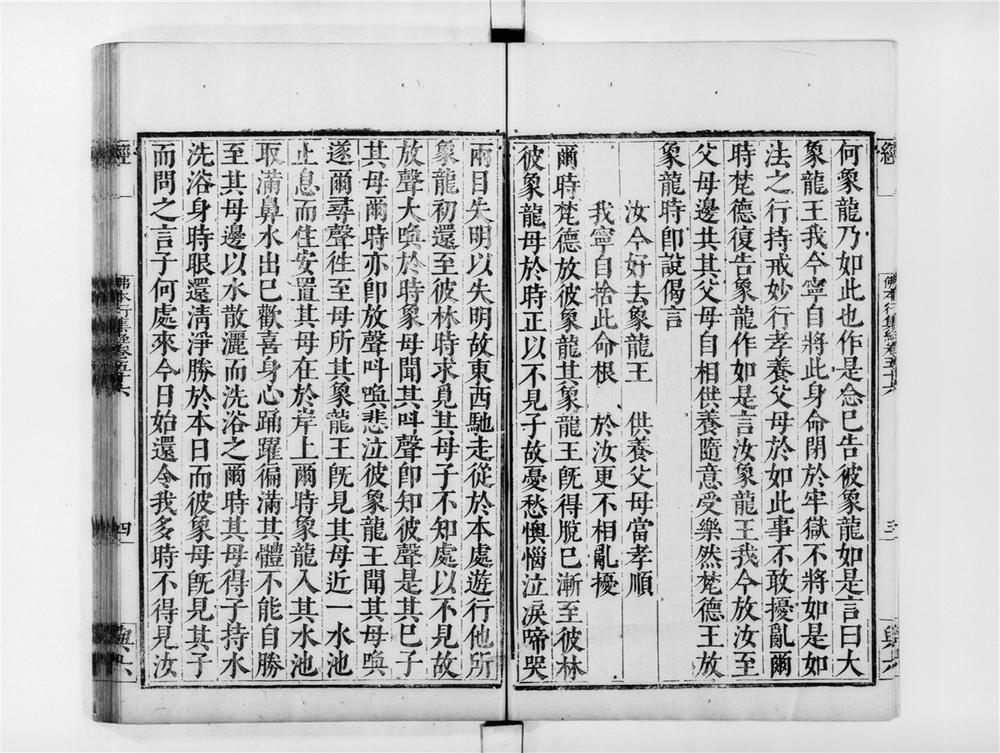 何象龍乃如此也作是念已告彼象龍如是言曰大
象龍王我今寧自將此身命閉於牢獄不將如是如
法之行持戒妙行孝養父母於如此事不敢擾亂爾
時梵德復告象龍作如是言汝象龍王我今放汝至
父母邊共其父母自相供養隨意受樂然梵德王放
象龍時卽說偈言
汝今好去象龍王　供養父母當孝順
我寧自捨此命根　於汝更不相亂擾
爾時梵德放彼象龍其象龍王旣得脫已漸至彼林
彼象龍母於時正以不見子故憂愁懊惱泣淚啼哭
兩目失明以失明故東西馳走從於本處遊行他所
象龍初還至彼林時求覓其母子不知處以不見故
放聲大喚於時象母聞其叫聲卽知彼聲是其已子
其母爾時亦卽放聲叫喚悲泣彼象龍王聞其母喚
遂爾尋聲徃至母所其象龍王旣見其母近一水池
止息而住安置其母在於岸上爾時象龍入其水池
取滿鼻水出已歡喜身心踊躍徧滿其體不能自勝
至其母邊以水散灑而洗浴之爾時其母得子持水
洗浴身時眼還淸淨勝於本日而彼象母旣見其子
而問之言子何處來今日始還令我多時不得見汝
經
佛本行集經卷五十六
三
經
佛本行集經卷五十六
四